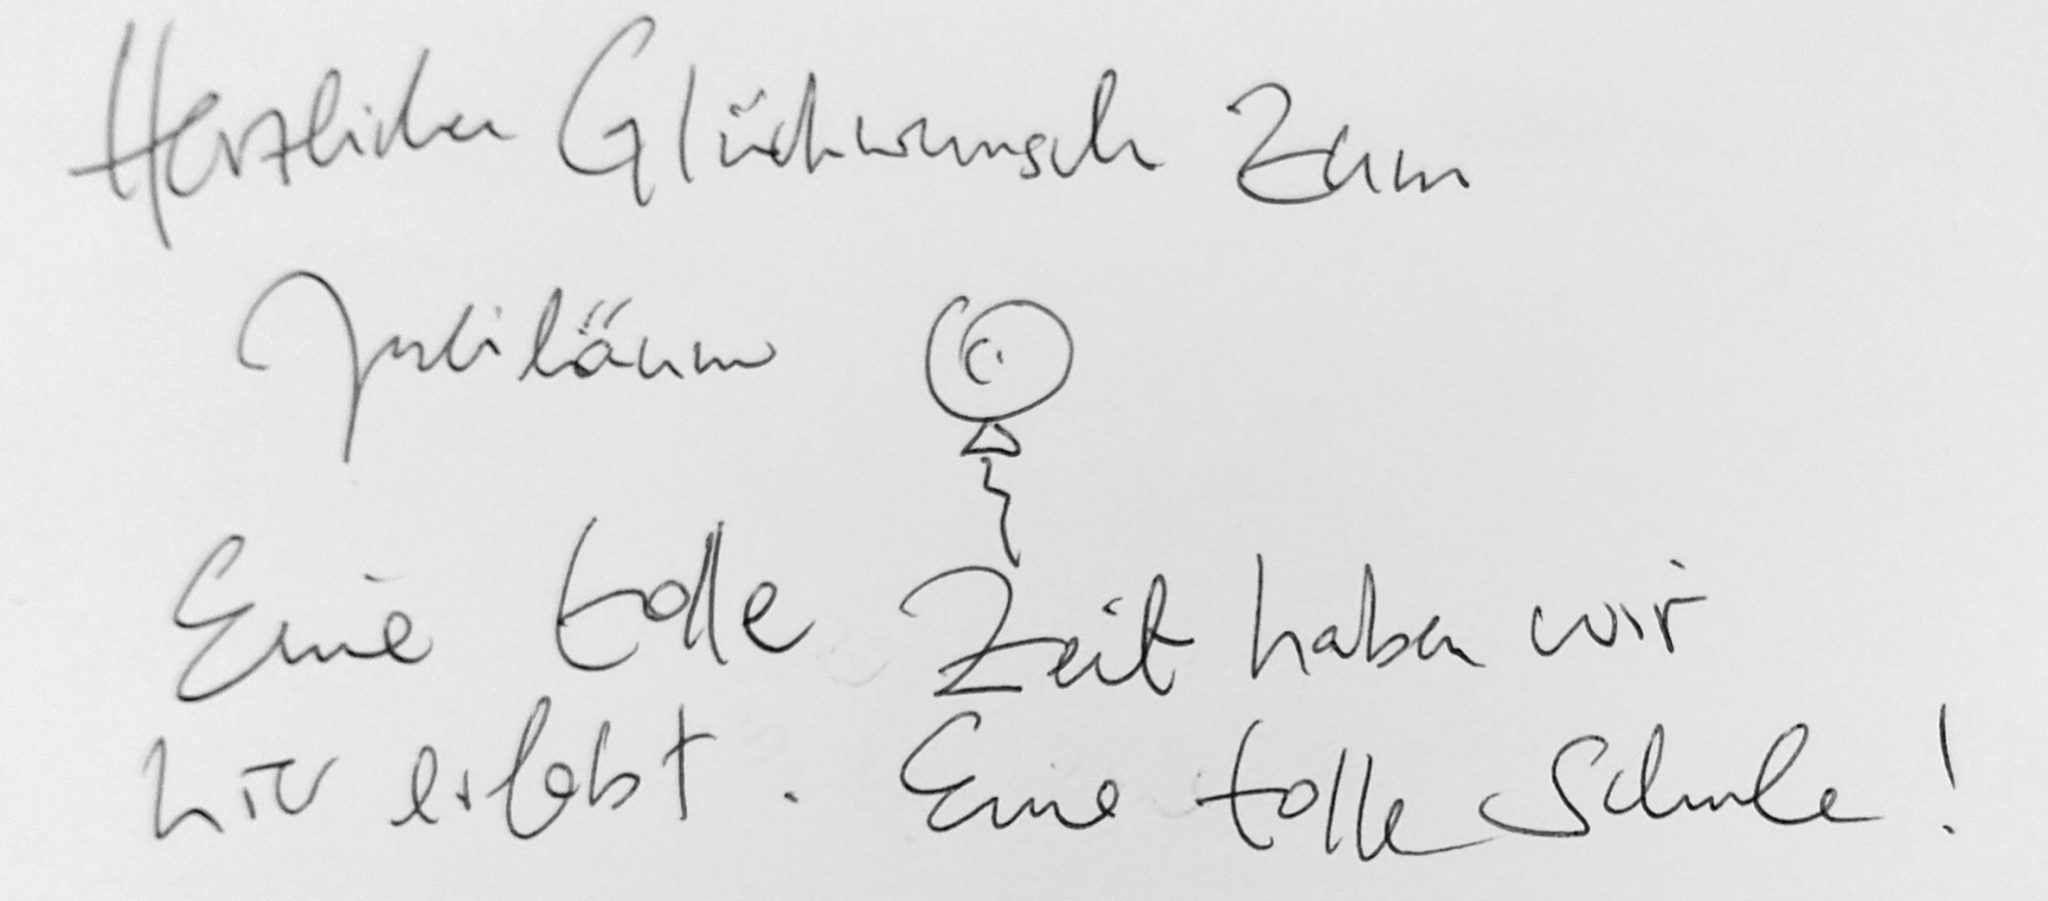 Herzlichen Glückwunsch zum
Jubiläum
Eine tolle Zeit haben wir
hier erlebt. Eine tolle Schule!